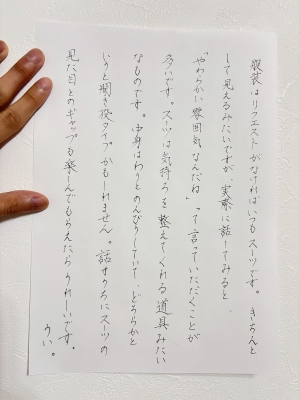 服装はリクエストがなければいつもスーツです。きちんと
して見えるみたいですが、実際に話してみると、
「やわらかい雰囲気なんだね」って言っていただくことが
多いです。スーツは気持ちを整えてくれる道具みたい
なものです。中身はわりとのんびりしていて、どちらかと
いうと聞き役タイプかもしれません。話すうちにスーツの
見た目とのギャップも楽しんでもらえたらうれしいです。
うい。